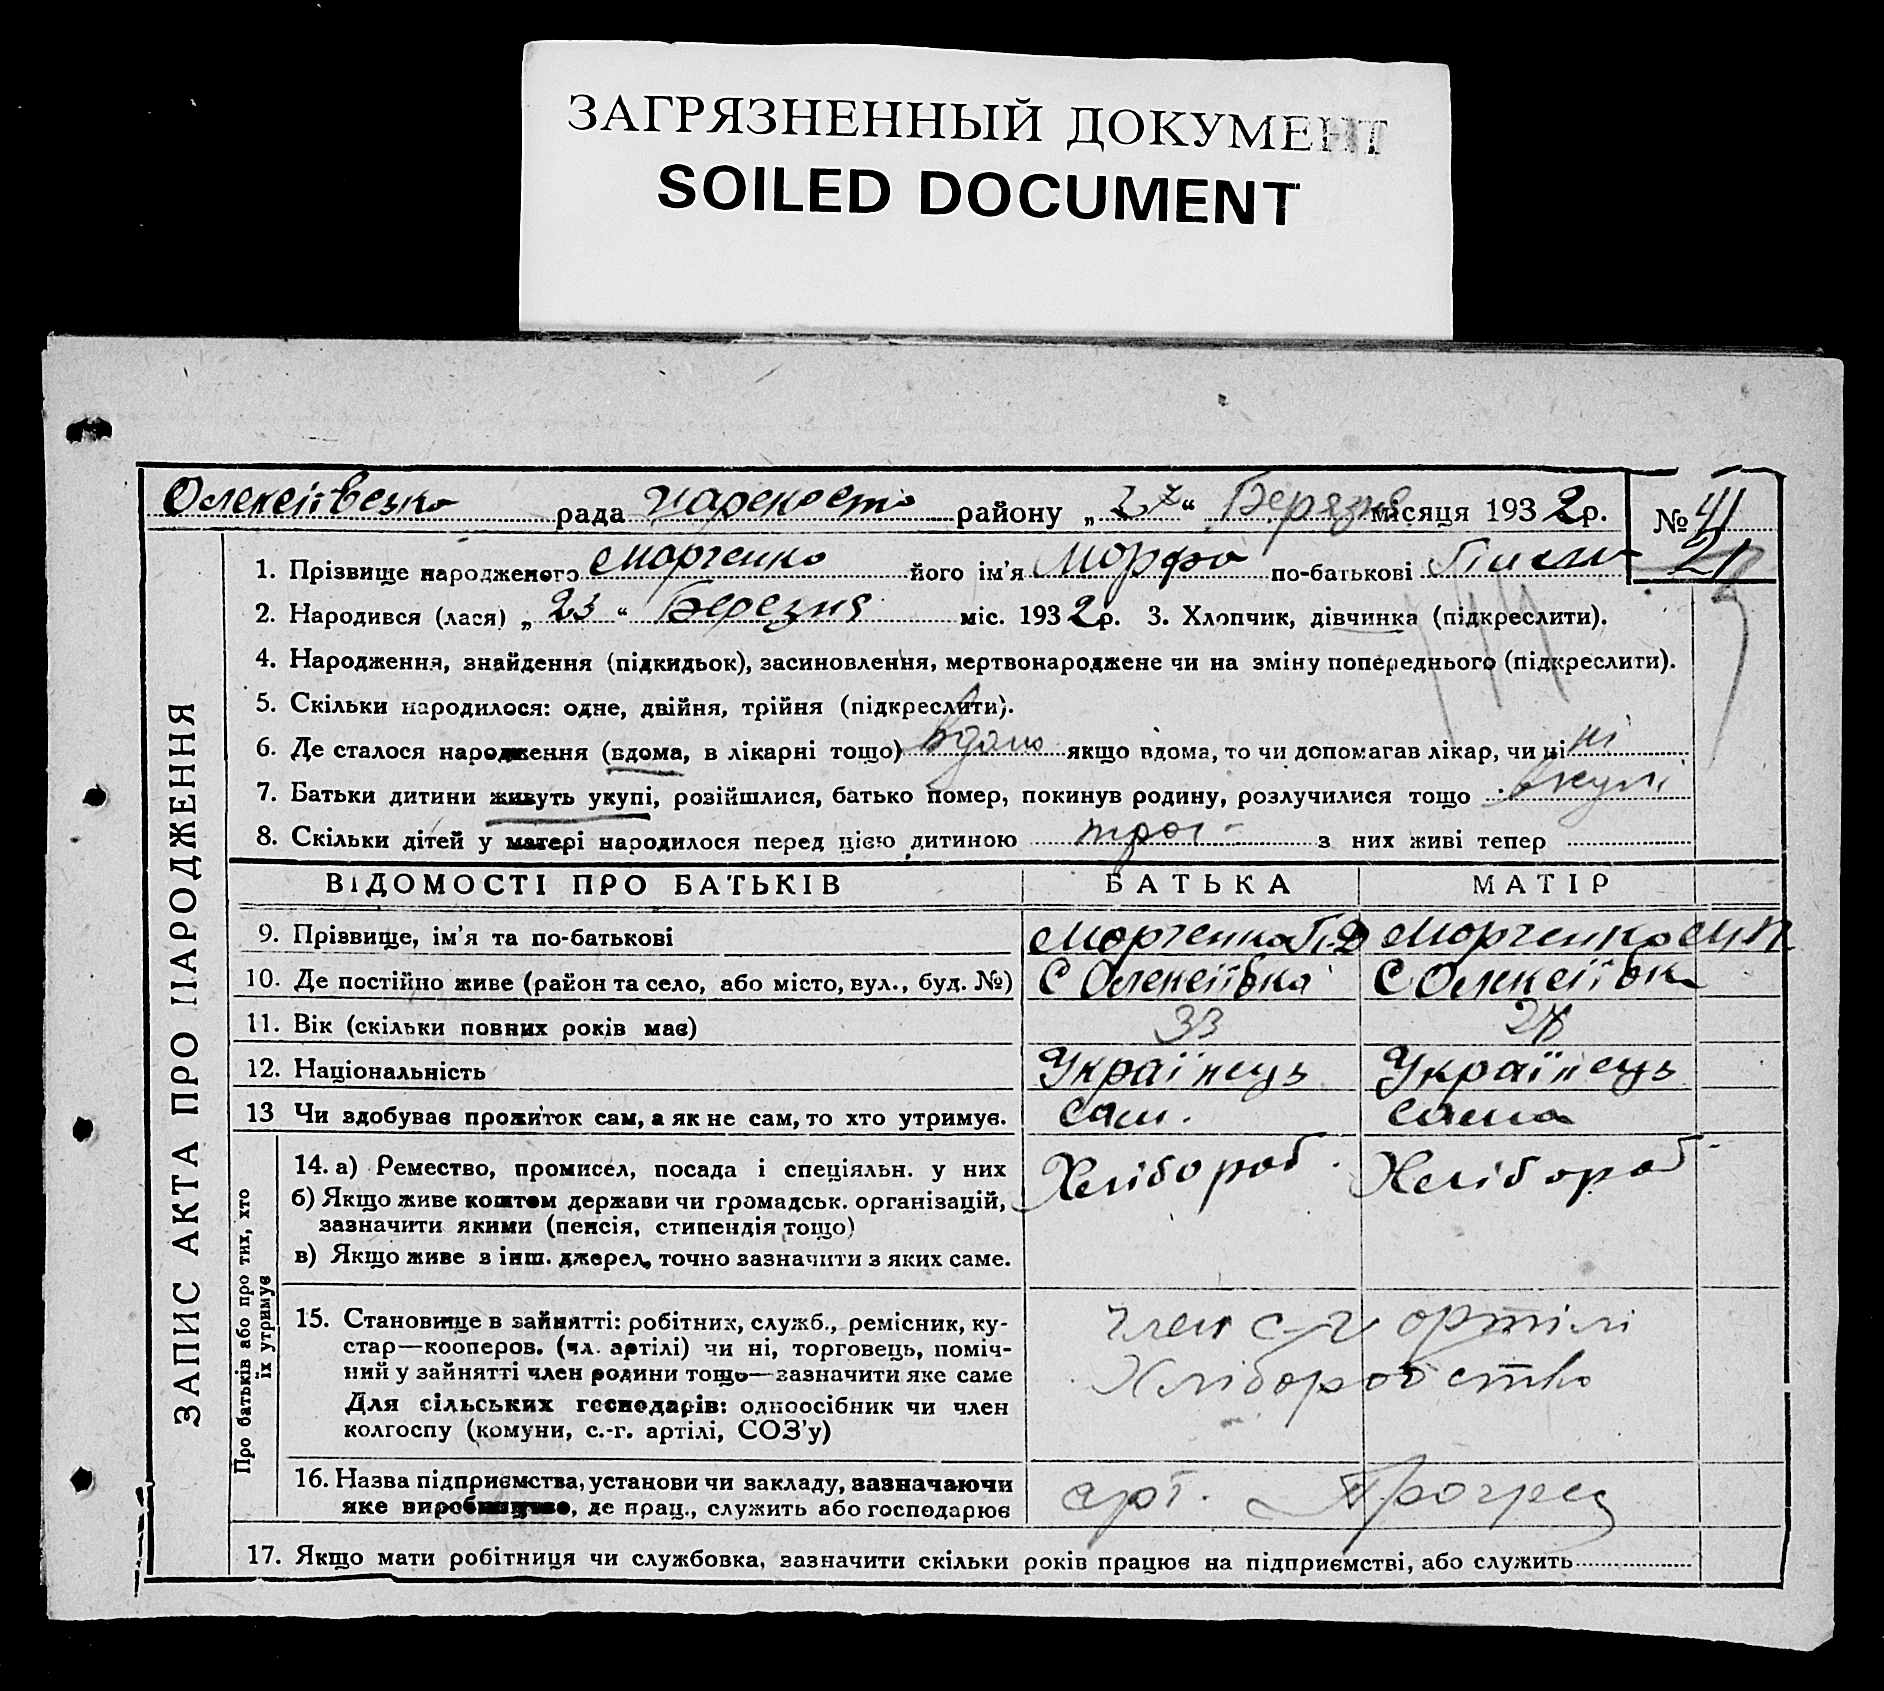 ЗАГРЯЗНЕННЫЙ ДОКУМЕНТ
SOILED DOCUMENT
Олексіївсько рада району „27“ Березня місяця 1932р. № 41
21
1. Прізвище народженого Марченко його ім’я Морфа по-батькові
2. Народився (лася) „23“ Березня міс. 1932р. 3. Хлопчик, дівчинка (підкреслити).
4. Народження, знайдення (підкидьок), засиновлення, мертвонароджене чи на зміну попереднього (підкреслити).
5. Скільки народилося: одне, двійня, трійня (підкреслити).
6. Де сталося народження (вдома, в лікарні тощо) вдома якщо вдома, то чи допомагав лікар, чи ні ні
7. Батьки дитини живуть укупі, розійшлися, батько помер, покинув родину, розлучилися тощо вкупі
8. Скільки дітей у матері народилося перед цією дитиною троє з них живі тепер
ЗАПИС АКТА ПРО НАРОДЖЕННЯ
ВІДОМОСТІ ПРО БАТЬКІВ БАТЬКА МАТІР
9. Прізвище, ім’я та по-батькові Марченко П.Д Марченко М П
10. Де постійно живе (район та село, або місто, вул., буд. №) С Олексіївка С Олексіївка
11. Вік (скільки повних років має) 33
12. Національність Українець Українець
13 Чи здобуває прожиток сам, а як не сам, то хто утримує. Сам. Сама
Про батьків або про тих, хто їх утримує
14. а) Ремество, промисел, посада і спеціяльн. у них Хлібороб. Хлібороб
б) Якщо живе коштом держави чи громадськ. організацій,
зазначити якими (пенсія, стипендія тощо)
в) Якщо живе з інш. джерел, точно зазначити з яких саме.
15. Становище в зайнятті: робітник, служб., ремісник, ку- член с-г ортілі
стар—кооперов. (чл. артілі) чи ні, торговець, поміч- Хліборобство
ний у зайнятті член родини тощо—зазначити яке саме
Для сільських господарів: одноосібник чи член
колгоспу (комуни, с.-г. артілі, СОЗ’у)
16. Назва підприємства, установи чи закладу, зазначаючи арт. Прогрес
яке виробництво, де прац., служить або господарює
17. Якщо мати робітниця чи службовка, зазначити скільки років працює на підприємстві, або служить